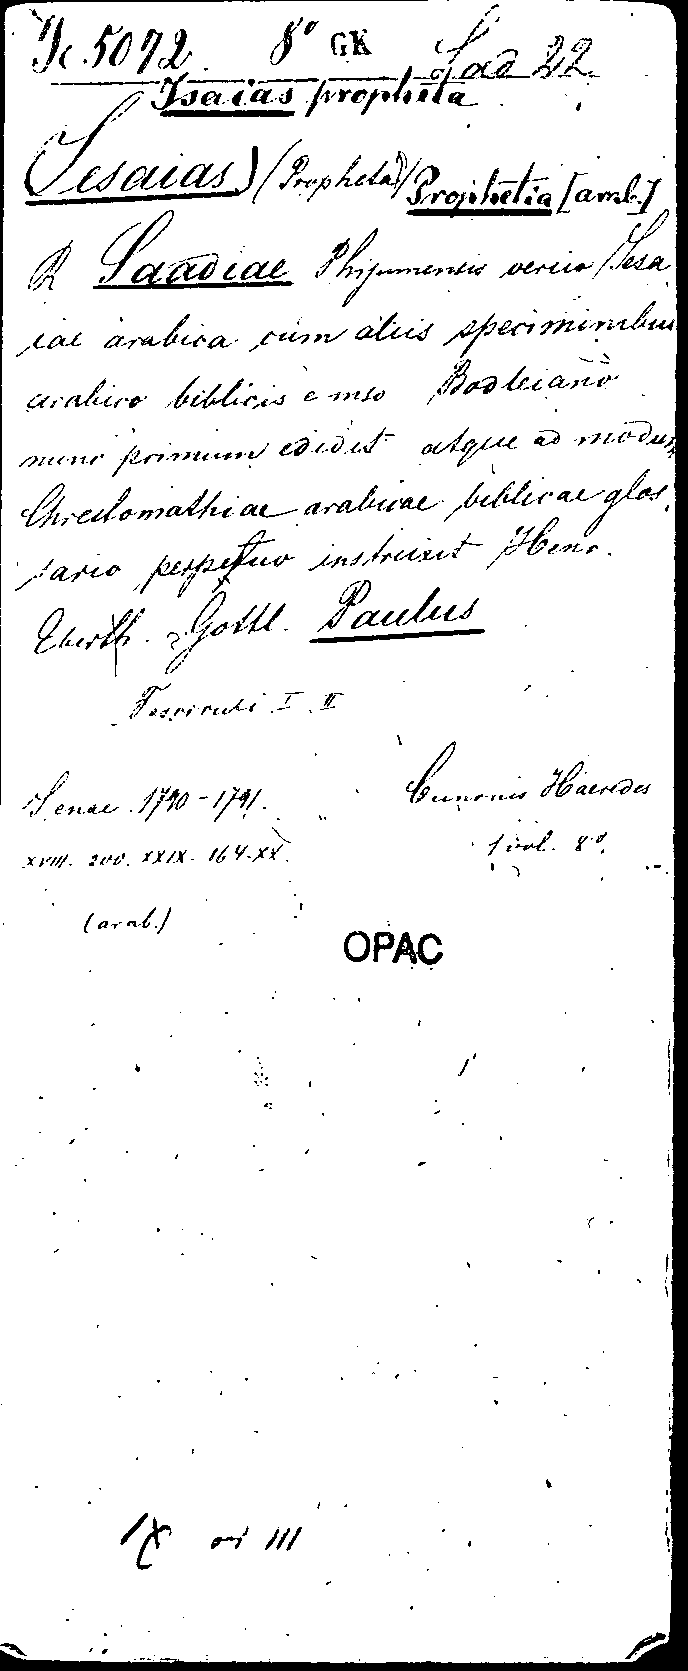 Ic. 5072. 8° GK Sad 22
Isaias propheta
(Jesaias) (Propheta) Prophetia [arab.]
R Saadiae Phijumensis versio Jesa
iae arabica cum aliis speciminibus
arabico biblicis e mso Bodleiano
nunc primum edidit atque ad modum
Chrestomathiae arabicae biblicae glos,
sario perpetuo instruixit Henr.
Eberth. Gottl. Paulus
Fasciculi I. II
Jenae. 1790-1791. Cunonis Haeredes
XVIII. 200. XXIX. 164. XX. 1 vol. 8°.
(arab.)
OPAC
III